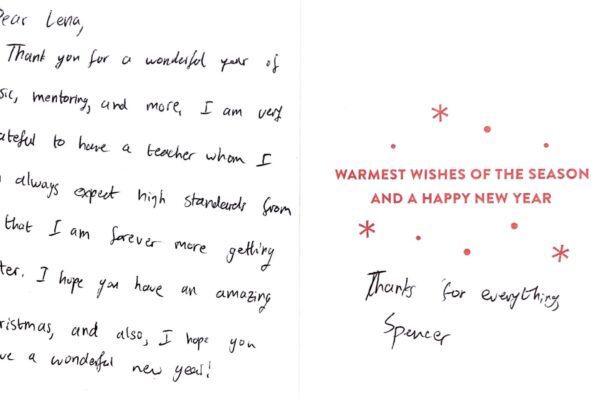 ear Lena,
Thank you for a wonderful year of
sic, mentoring, and more, I am very
ateful to have a teacher whom I
always expect high standards from
that I am forever more getting
ter. I hope you have an amazing
ristmas, and also, I hope you
ve a wonderful new year!
WARMEST WISHES OF THE SEASON
AND A HAPPY NEW YEAR
Thanks for everything,
Spencer